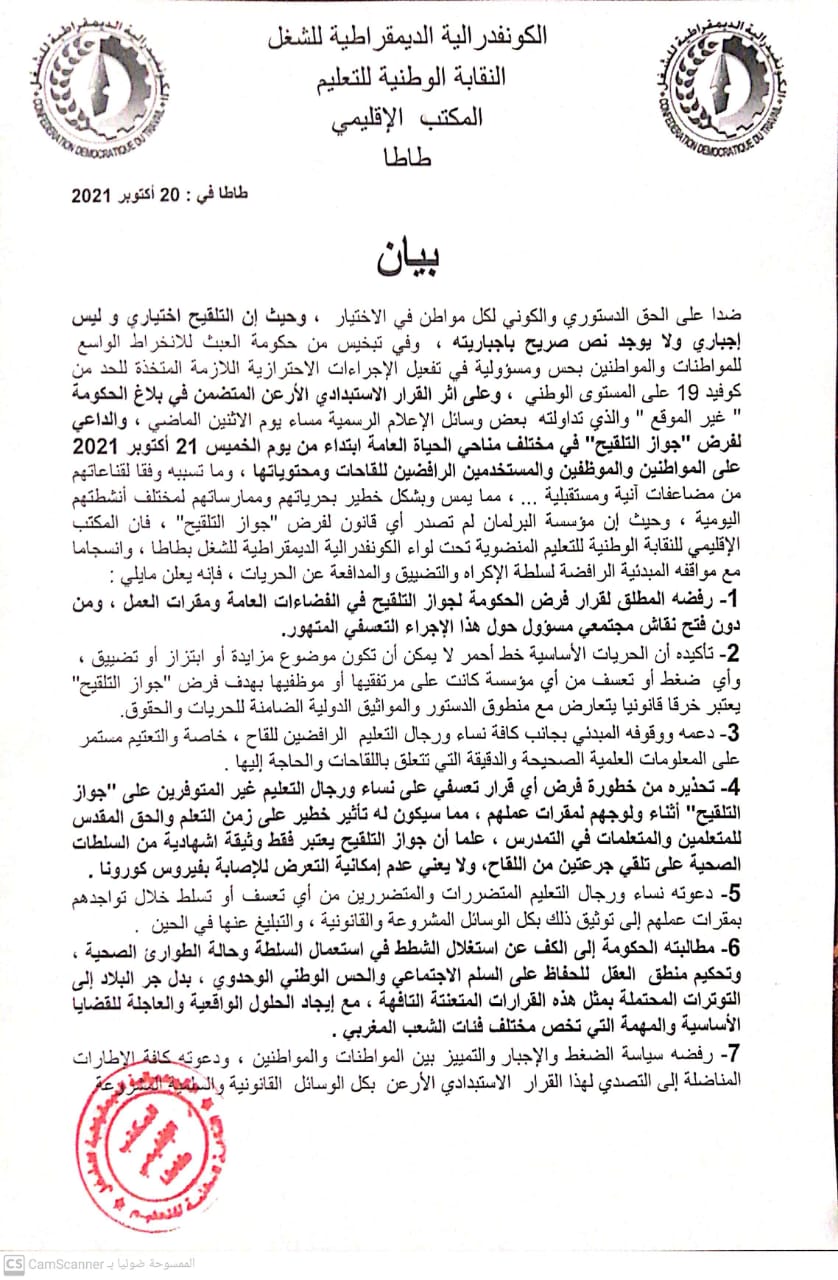 الكونفدرالية الديمقراطية للشغل
النقابة الوطنية للتعليم
المكتب الإقليمي
طاطا
الكونفدرالية الديمقراطية للشغل
CONFEDERATION DEMOCRATIQUE DU TRAVAIL
الكونفدرالية الديمقراطية للشغل
CONFEDERATION DEMOCRATIQUE DU TRAVAIL
طاطا في : 20 أكتوبر 2021
بيان
ضدا على الحق الدستوري والكوني لكل مواطن في الاختيار ، وحيث إن التلقيح اختياري و ليس
إجباري ولا يوجد نص صريح بإجباريته ، وفي تبخيس من حكومة العبث للانخراط الواسع
للمواطنات والمواطنين بحس ومسؤولية في تفعيل الإجراءات الاحترازية اللازمة المتخذة للحد من
كوفيد 19 على المستوى الوطني ، وعلى اثر القرار الاستبدادي الأرعن المتضمن في بلاغ الحكومة
" غير الموقع " والذي تداولته بعض وسائل الإعلام الرسمية مساء يوم الاثنين الماضي ، والداعي
لفرض "جواز التلقيح" في مختلف مناحي الحياة العامة ابتداء من يوم الخميس 21 أكتوبر 2021
على المواطنين والموظفين والمستخدمين الرافضين للقاحات ومحتوياتها ، وما تسببه وفقا لقناعاتهم
من مضاعفات آنية ومستقبلية ... ، مما يمس وبشكل خطير بحرياتهم وممارساتهم لمختلف أنشطتهم
اليومية ، وحيث إن مؤسسة البرلمان لم تصدر أي قانون لفرض "جواز التلقيح" ، فان المكتب
الإقليمي للنقابة الوطنية للتعليم المنضوية تحت لواء الكونفدرالية الديمقراطية للشغل بطاطا ، وانسجاما
مع مواقفه المبدئية الرافضة لسلطة الإكراه والتضييق والمدافعة عن الحريات ، فإنه يعلن مايلي :
1- رفضه المطلق لقرار فرض الحكومة لجواز التلقيح في الفضاءات العامة ومقرات العمل ، ومن
دون فتح نقاش مجتمعي مسؤول حول هذا الإجراء التعسفي المتهور.
2- تأكيده أن الحريات الأساسية خط أحمر لا يمكن أن تكون موضوع مزايدة أو ابتزاز أو تضييق ،
وأي ضغط أو تعسف من أي مؤسسة كانت على مرتفقيها أو موظفيها بهدف فرض "جواز التلقيح"
يعتبر خرقا قانونيا يتعارض مع منطوق الدستور والمواثيق الدولية الضامنة للحريات والحقوق.
3- دعمه ووقوفه المبدئي بجانب كافة نساء ورجال التعليم الرافضين للقاح ، خاصة والتعتيم مستمر
على المعلومات العلمية الصحيحة والدقيقة التي تتعلق باللقاحات والحاجة إليها .
4- تحذيره من خطورة فرض أي قرار تعسفي على نساء ورجال التعليم غير المتوفرين على "جواز
التلقيح" أثناء ولوجهم لمقرات عملهم ، مما سيكون له تأثير خطير على زمن التعلم والحق المقدس
للمتعلمين والمتعلمات في التمدرس ، علما أن جواز التلقيح يعتبر فقط وثيقة اشهادية من السلطات
الصحية على تلقي جرعتين من اللقاح، ولا يعني عدم إمكانية التعرض للإصابة بفيروس كورونا .
5- دعوته نساء ورجال التعليم المتضررات والمتضررين من أي تعسف أو تسلط خلال تواجدهم
بمقرات عملهم إلى توثيق ذلك بكل الوسائل المشروعة والقانونية ، والتبليغ عنها في الحين .
6- مطالبته الحكومة إلى الكف عن استغلال الشطط في استعمال السلطة وحالة الطوارئ الصحية ،
وتحكيم منطق العقل للحفاظ على السلم الاجتماعي والحس الوطني الوحدوي ، بدل جر البلاد إلى
التوترات المحتملة بمثل هذه القرارات المتعنتة التافهة ، مع إيجاد الحلول الواقعية والعاجلة للقضايا
الأساسية والمهمة التي تخص مختلف فئات الشعب المغربي .
7- رفضه سياسة الضغط والإجبار والتمييز بين المواطنات والمواطنين ، ودعوته كافة الإطارات
المناضلة إلى التصدي لهذا القرار الاستبدادي الأرعن بكل الوسائل القانونية والسلمية المشروعة
CS CamScanner الممسوحة ضوئيا بـ